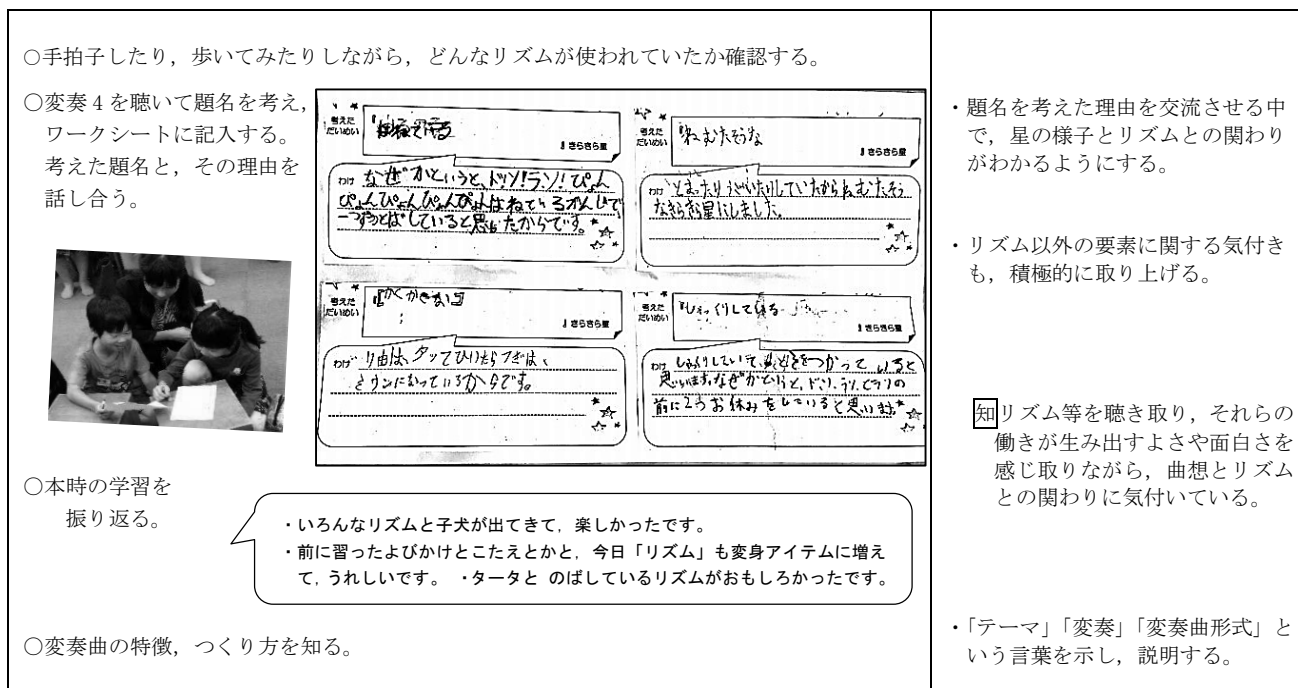 ○手拍子したり，歩いてみたりしながら，どんなリズムが使われていたか確認する。
○変奏4を聴いて題名を考え，
ワークシートに記入する。
考えた題名と，その理由を
話し合う。
考えた
だいめい
』きらきら星
わけ なぜかというと、ドソ！ラソ！ぴょん
ぴょんぴょんぴょんぴょんはねているかんじで、
一つずつとばしていると思ったからです。
考えた
だいめい
『ねむたそうな
』きらきら星
わけ とまったりうごいたりしていたからねむたそう
なきらきら星にしました。
考えた
だいめい
『かくかきない』
』きらきら星
わけ り由は、タッてひいたらつぎは、
考えた
だいめい
』きらきら星
わけ
思います。なぜかというと、ドソ、ラソ、
前に2つお休みをしていると思います
○本時の学習を
振り返る。
・いろんなリズムと子犬が出てきて，楽しかったです。
・前に習ったよびかけとこたえとかと，今日「リズム」も変身アイテムに増え
て，うれしいです。 ・タータと のばしているリズムがおもしろかったです。
○変奏曲の特徴，つくり方を知る。
・題名を考えた理由を交流させる中
で，星の様子とリズムとの関わり
がわかるようにする。
・リズム以外の要素に関する気付き
も，積極的に取り上げる。
知リズム等を聴き取り，それらの
働きが生み出すよさや面白さを
感じ取りながら，曲想とリズム
との関わりに気付いている。
・「テーマ」「変奏」「変奏曲形式」と
いう言葉を示し，説明する。